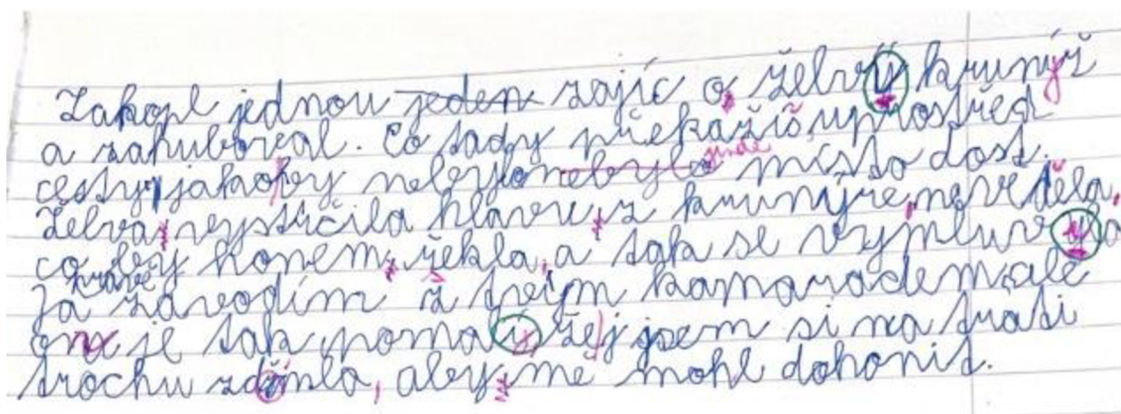 Zakopl jednou jeden zajíc o želvý krunýř
a zahuboval. Co tady překážíš uprostřed
cesty, jakoby nebylo jinde místo dost.
Želva vystrčila hlavu z krunýře, nevěděla,
co by honem řekla, a tak se vymluvila
Já právě závodím s tvým kamarádem, ale
on je tak pomalí, žej jsem si na trati
trochu zdřímla, aby mě mohl dohonit.